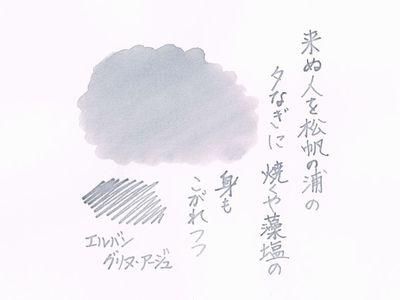 来ぬ人を松帆の浦の
夕なぎに焼くや藻塩の
身も
こがれつつ
エルバン
グリヌ・アージュ